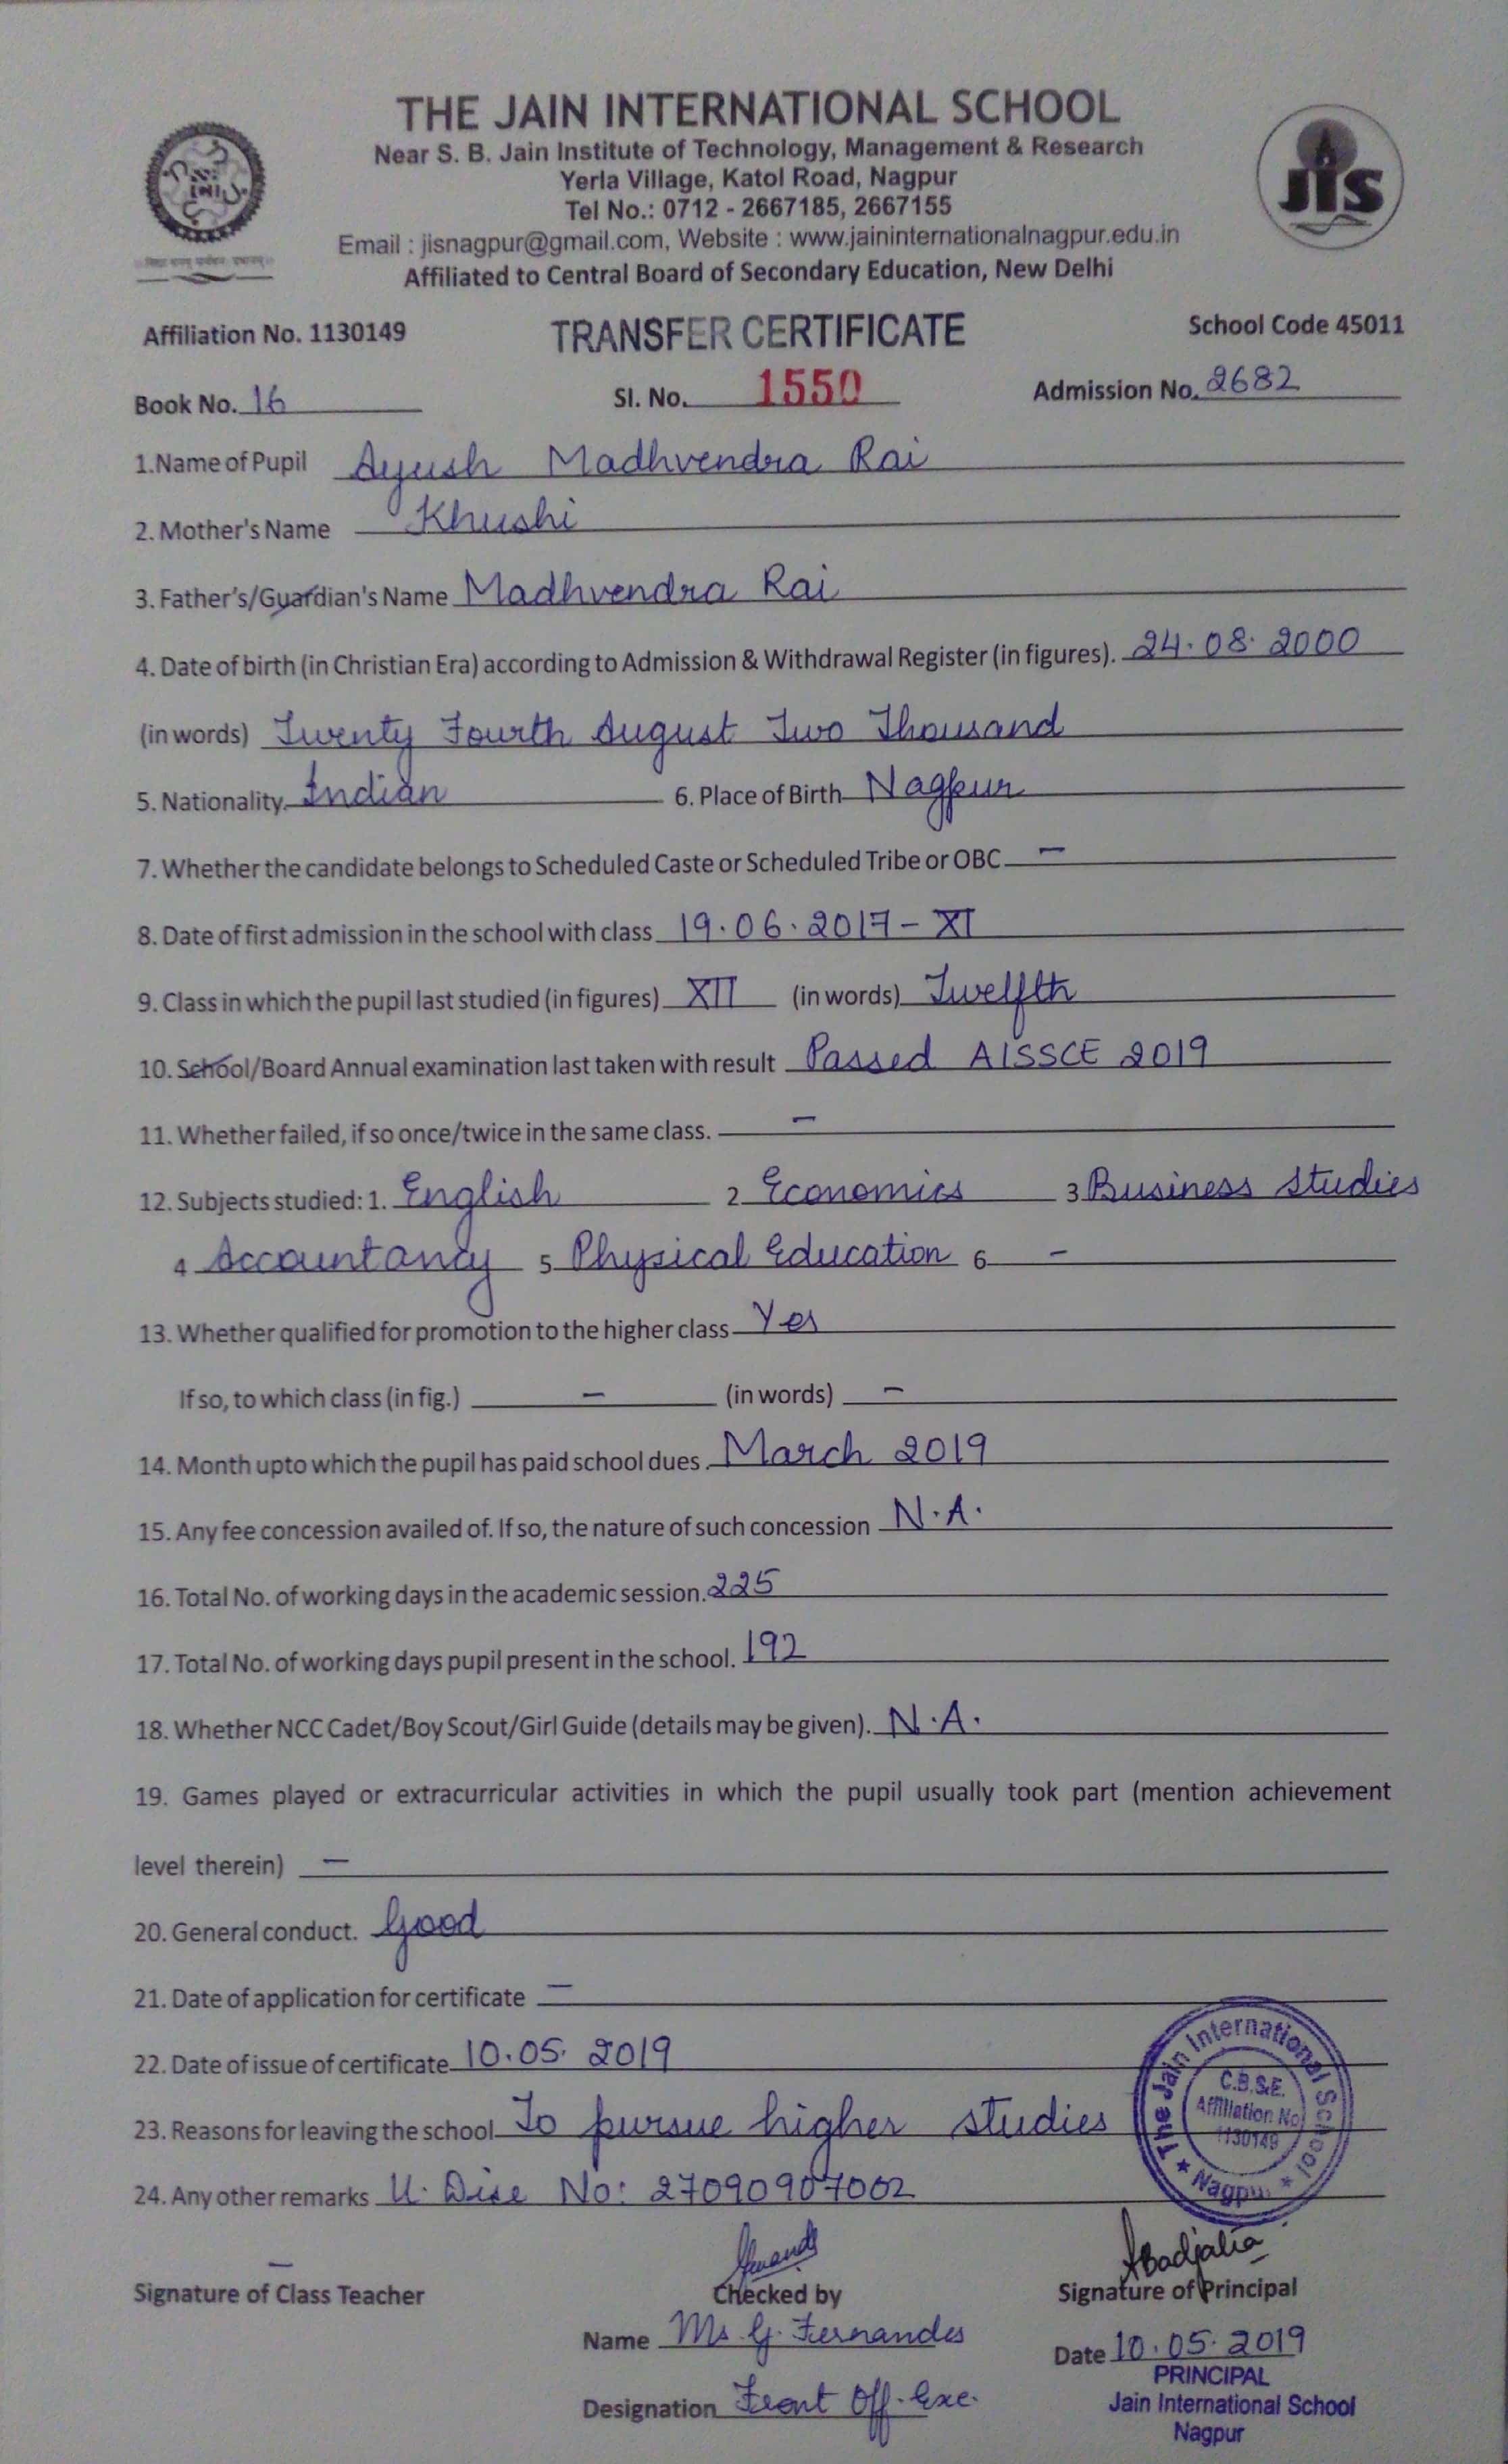 THE JAIN INTERNATIONAL SCHOOL
Near S. B. Jain Institute of Technology, Management & Research
Yerla Village, Katol Road, Nagpur
Tel No.: 0712 - 2667185, 2667155
Email : jisnagpur@gmail.com, Website : www.jaininternationalnagpur.edu.in
Affiliated to Central Board of Secondary Education, New Delhi
JIS
Affiliation No. 1130149 TRANSFER CERTIFICATE School Code 45011
Book No. 16 Sl. No. 1550 Admission No. 2682
1.Name of Pupil Ayush Madhvendra Rai
2. Mother's Name Khushi
3. Father's/Guardian's Name Madhvendra Rai
4. Date of birth (in Christian Era) according to Admission & Withdrawal Register (in figures). 24.08.2000
(in words) Twenty Fourth August Two Thousand
5. Nationality. Indian 6. Place of Birth Nagpur
7. Whether the candidate belongs to Scheduled Caste or Scheduled Tribe or OBC —
8. Date of first admission in the school with class 19.06.2017 - XI
9. Class in which the pupil last studied (in figures) XII (in words) Twelfth
10. School/Board Annual examination last taken with result Passed AISSCE 2019
11. Whether failed, if so once/twice in the same class. —
12. Subjects studied: 1. English 2 Economics 3 Business Studies
4 Accountancy 5 Physical Education 6 —
13. Whether qualified for promotion to the higher class Yes
If so, to which class (in fig.) — (in words) —
14. Month upto which the pupil has paid school dues. March 2019
15. Any fee concession availed of. If so, the nature of such concession N.A.
16. Total No. of working days in the academic session. 225
17. Total No. of working days pupil present in the school. 192
18. Whether NCC Cadet/Boy Scout/Girl Guide (details may be given). N.A.
19. Games played or extracurricular activities in which the pupil usually took part (mention achievement
level therein) —
20. General conduct. Good
21. Date of application for certificate —
22. Date of issue of certificate 10.05.2019
23. Reasons for leaving the school To pursue higher studies
24. Any other remarks U. Dise No: 27090907002
The Jain International School
C.B.S.E.
Affiliation No
1130149
Nagpur
—
Signature of Class Teacher Checked by Signature of Principal
Name Ms G. Fernandes
Date 10.05.2019
PRINCIPAL
Designation Front Off. Exe.
Jain International School
Nagpur